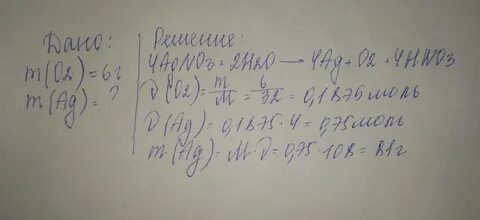 Дано:
m(O2)=6г
m(Ag)=?
Решение:
4AgNO3+2H2O→4Ag+O2+4HNO3
ν(O2)=m/M=6/32=0,1875моль
ν(Ag)=0,1875·4=0,75моль
m(Ag)=M·ν=0,75·108=81г